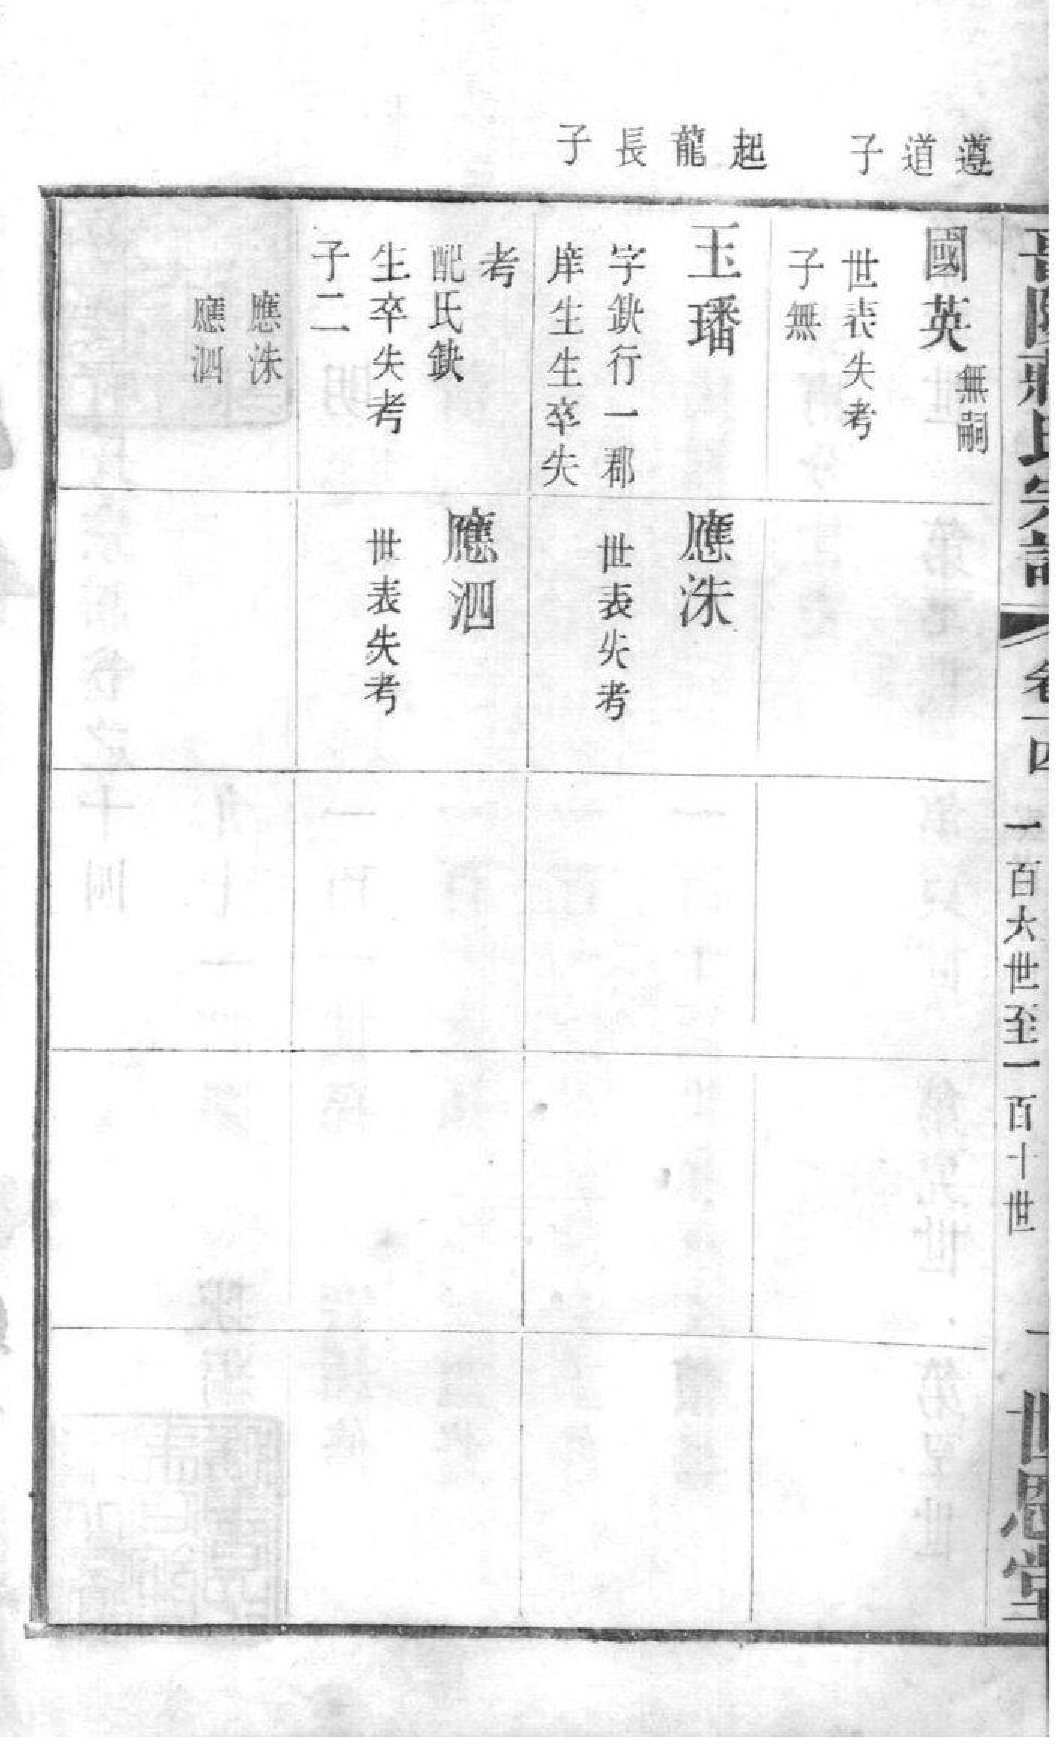 晉陵蔣氏宗譜
卷一四
一百六世至一百十世
一
世恩堂
遵道子
起龍長子
國英
無嗣
世表失考
子無
玉璠
字缺行一郡
庠生生卒失
考
配氏缺
生卒失考
子二
應洙
應泗
應洙
世表失考
應泗
世表失考